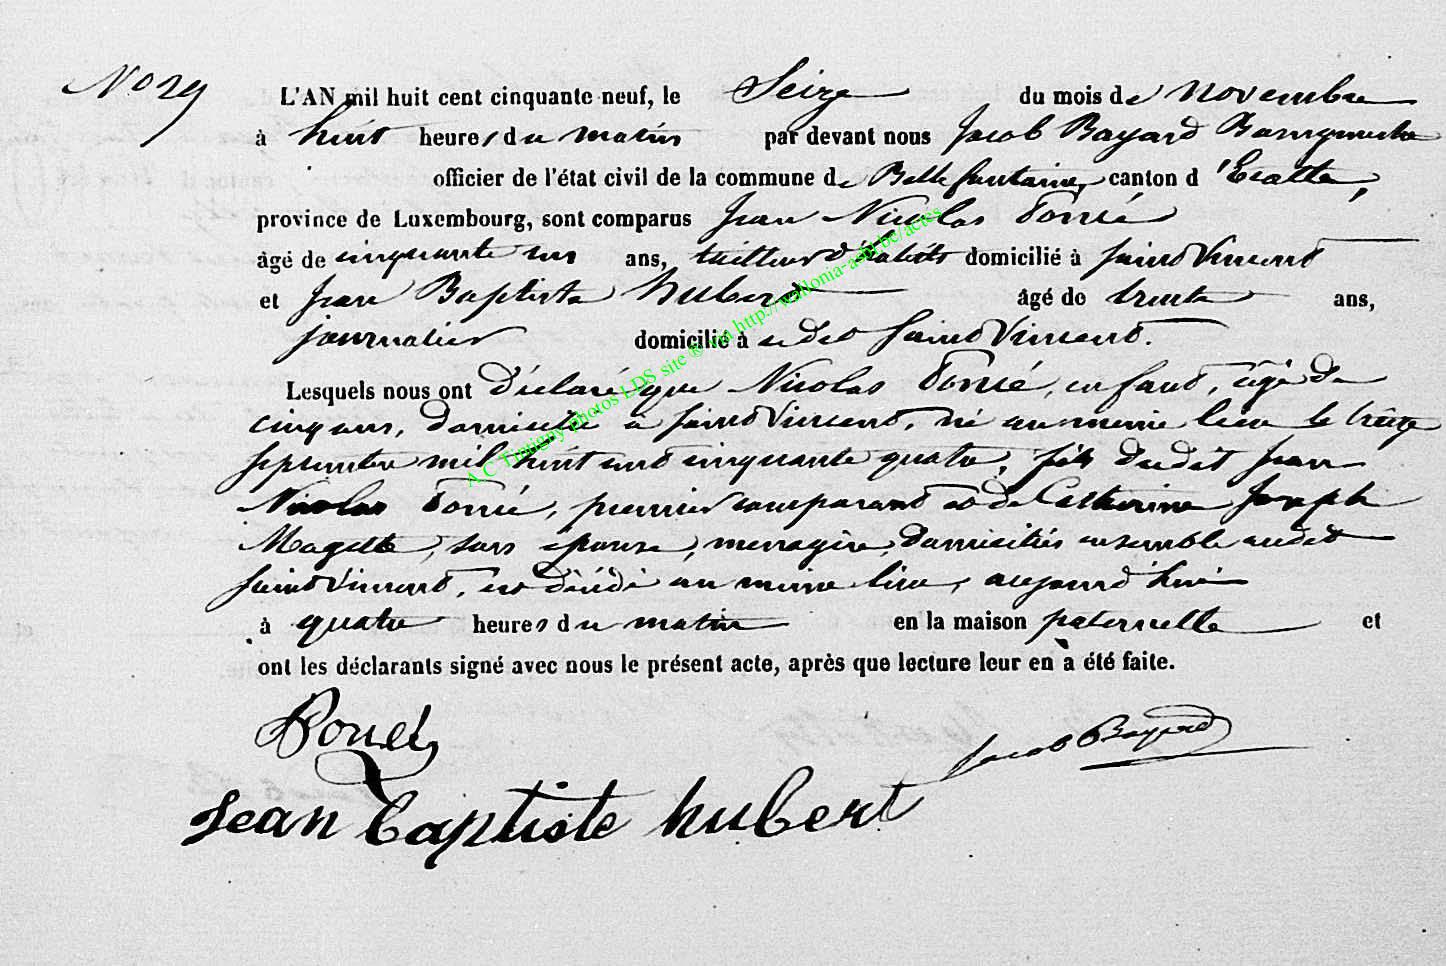 No 29
L'AN mil huit cent cinquante neuf, le Seize du mois de novembre
à huit heures du matin par devant nous Jacob Bayard Bourgmestre
officier de l'état civil de la commune de Bellefontaine, canton d'Etalle,
province de Luxembourg, sont comparus Jean Nicolas Ponsé
âgé de cinquante un ans, tailleur d'habits domicilié à Saint Vincent
et Jean Baptiste Hubert âgé de trente ans,
journalier domicilié à audit Saint Vincent.
Lesquels nous ont déclaré que Nicolas Ponsé, enfant, âgé de
cinq ans, domicilié à Saint Vincent, né au même lieu le treize
septembre mil huit cent cinquante quatre, fils dudit Jean
Nicolas Ponsé, premier comparant et de Catherine Joseph
Magette, son épouse, ménagère, domiciliés ensemble audit
Saint Vincent, est décédé au même lieu, aujourd'hui
à quatre heures du matin en la maison paternelle et
ont les déclarants signé avec nous le présent acte, après que lecture leur en à été faite.
Jacob Bayard
Jean Baptiste hubert
A.C Tintigny photos LDS site ® via http://wallonia-asbl.be/actes